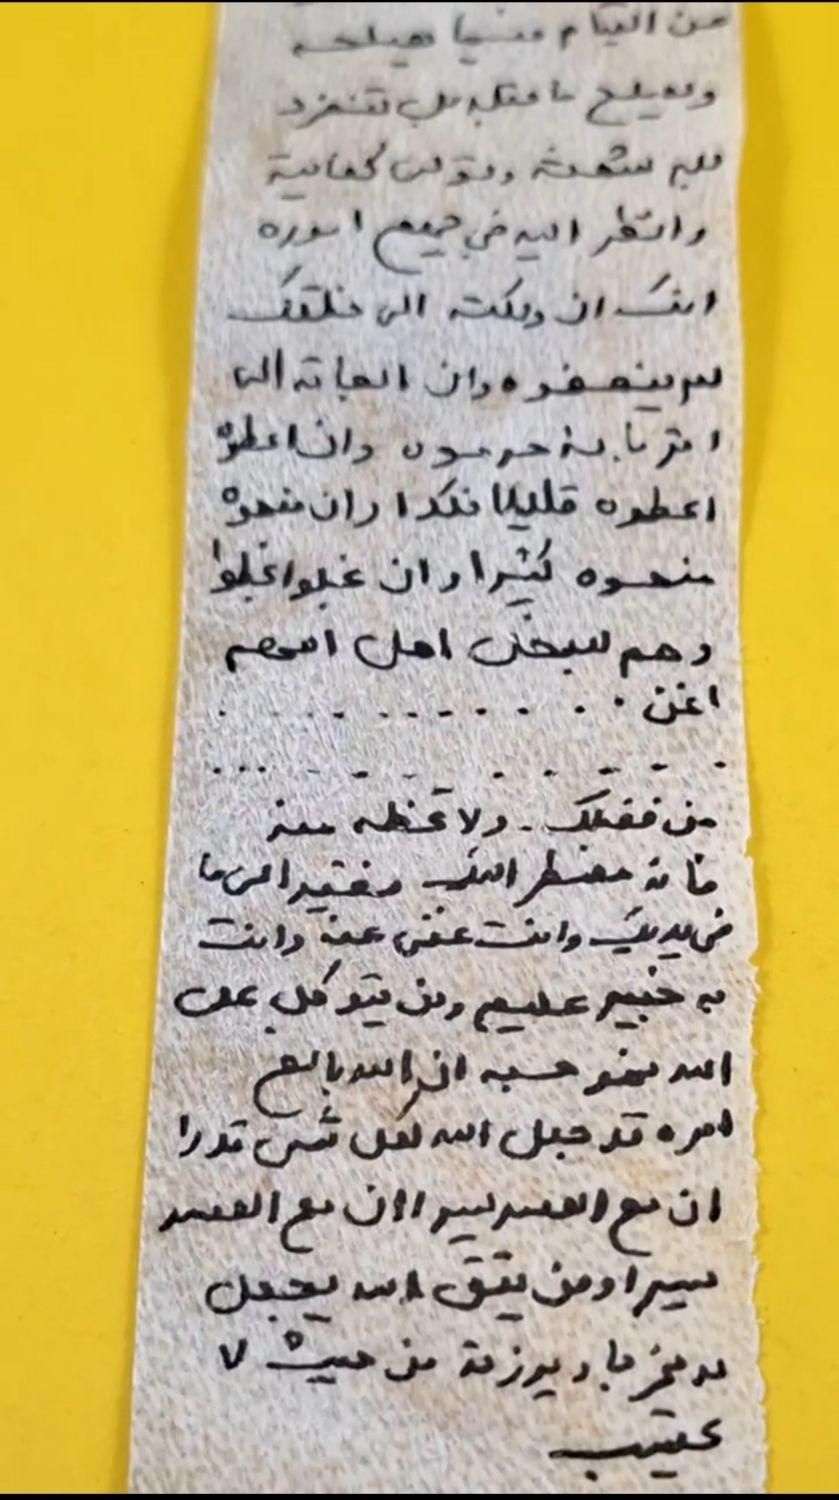 من القيام فيما يصلحه
ويصلح ما قبله بل تنفرد
بلم شعثه وتولى كفايته
وانظر اليه في جميع اموره
انك ان وكلته الى خلقك
لم ينفعوه وان الجاته الى
اقربايه حرموه وان اعطوه
اعطوه قليلا نكدا وان منعوه
منعوه كثيرا وان بخلوا بخلوا
وهم للبخل اهل اللهم
اغن . . . . . . . . . .
. . . . . . . . . . .
من فضلك .. ولا تخله منه
فانه مضطر اليك فقير الى ما
في يديك وانت غني عنه وانت
به خبير عليم ومن يتوكل على
الله فهو حسبه ان الله بالغ
امره قد جعل الله لكل شي قدرا
ان مع العسر يسرا ان مع العسر
يسرا ومن يتق الله يجعل
له مخرجا ويرزقه من حيث لا
يحتسب